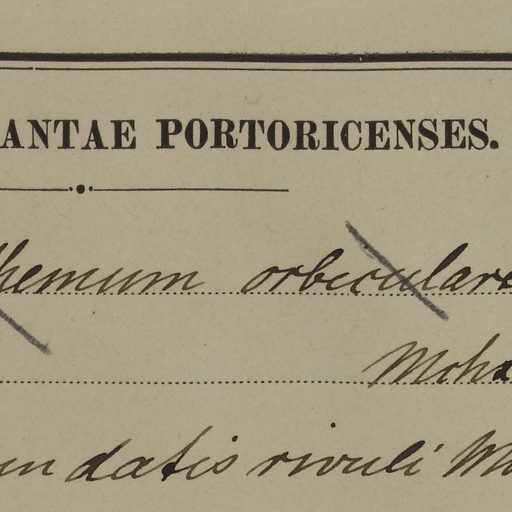 ANTAE PORTORICENSES.
hemum orbiculare
Moha
undatis rivuli